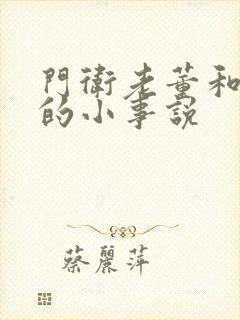 門衛老董和
的小事説
蔡麗萍